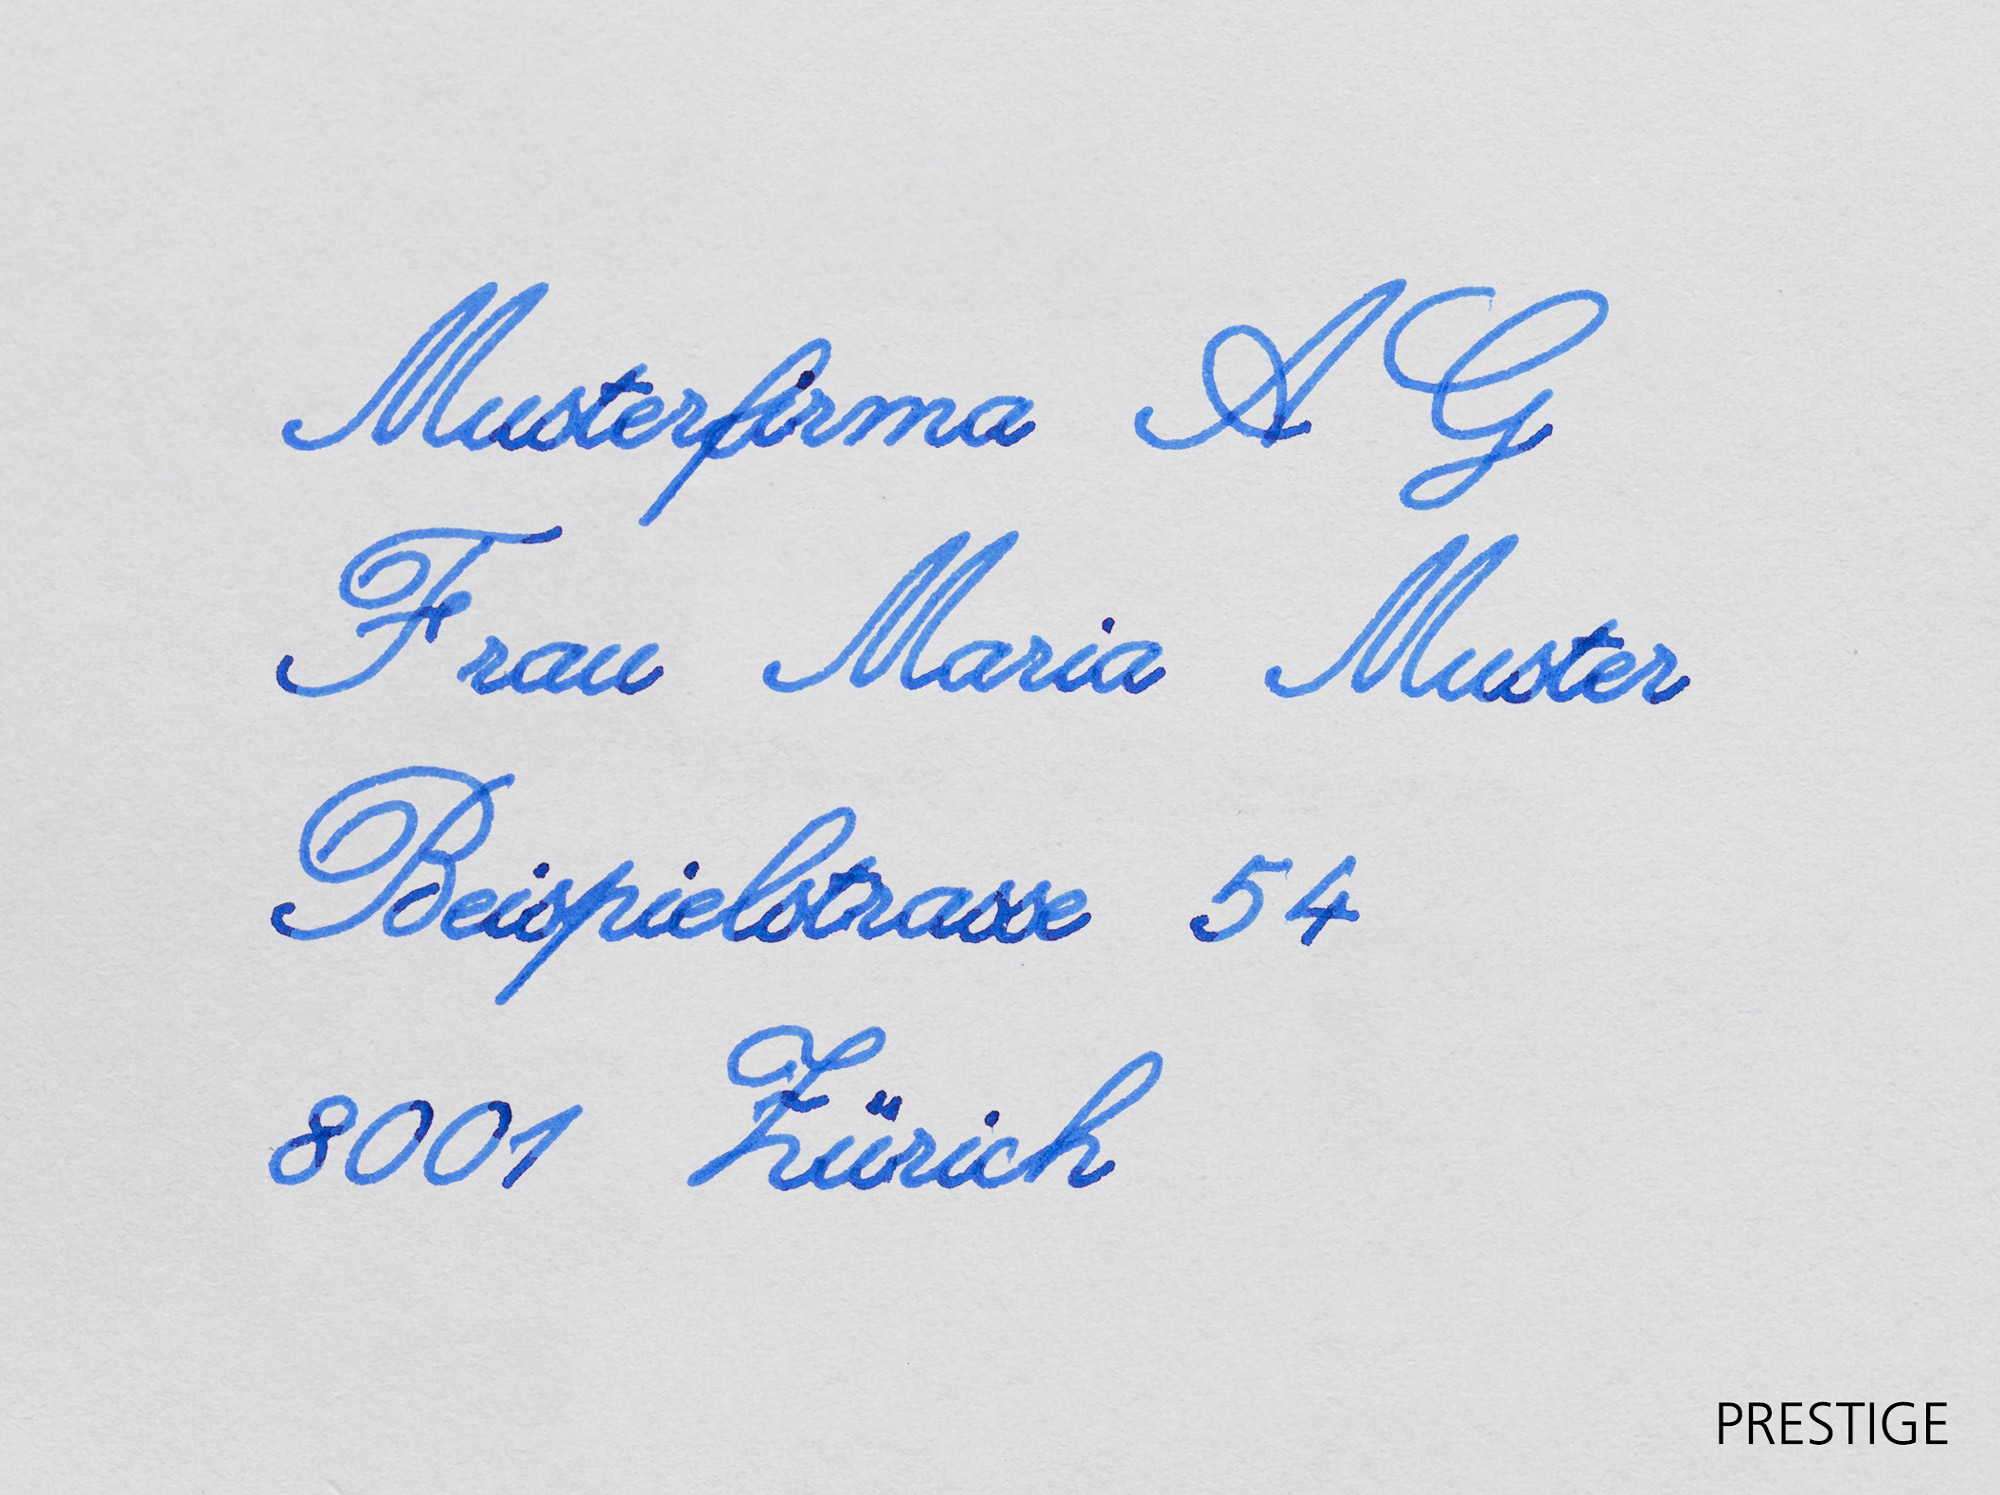 Musterfirma AG
Frau Maria Muster
Beispielstrasse 54
8001 Zürich
PRESTIGE